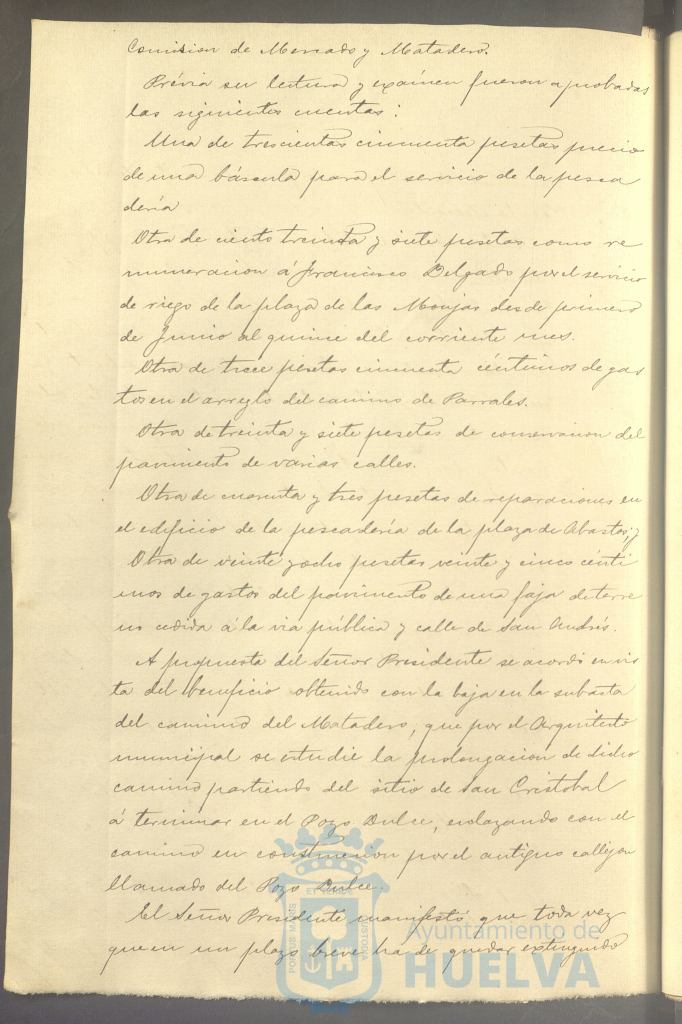 Comision de Mercado y Matadero.
Prévia su lectura y exámen fueron aprobadas
las siguientes cuentas:
Una de trescientas cincuenta pesetas precio
de una báscula para el servicio de la pesca
dería
Otra de ciento treinta y siete pesetas como re
muneracion á Francisco Delgado por el servicio
de riego de la plaza de las Monjas desde primero
de Junio al quince del corriente mes.
Otra de trece pesetas cincuenta céntimos de gas
tos en el arreglo del camino de Parrales.
Otra de treinta y siete pesetas de conservacion del
pavimento de varias calles.
Otra de cuarenta y tres pesetas de reparaciones en
el edificio de la pescadería de la plaza de Abastos; y
Otra de veinte y ocho pesetas veinte y cinco cénti
mos de gastos del pavimento de una faja de terre
no cedida á la via pública y calle de San Andrés.
A propuesta del Señor Presidente se acordó en vis
ta del beneficio obtenido con la baja en la subasta
del camino del Matadero, que por el Arquitecto
municipal se estudie la prolongacion de dicho
camino partiendo del sitio de San Cristobal
á terminar en el Pozo Dulce, enlazando con el
camino en construccion por el antiguo callejon
llamado del Pozo Dulce.
El Señor Presidente manifestó que toda vez
que en un plazo breve ha de quedar extinguido
Ayuntamiento de
HUELVA